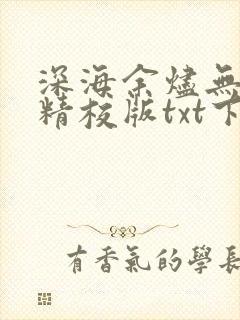 深海余燼無
精校版txt下
有香氣的學長